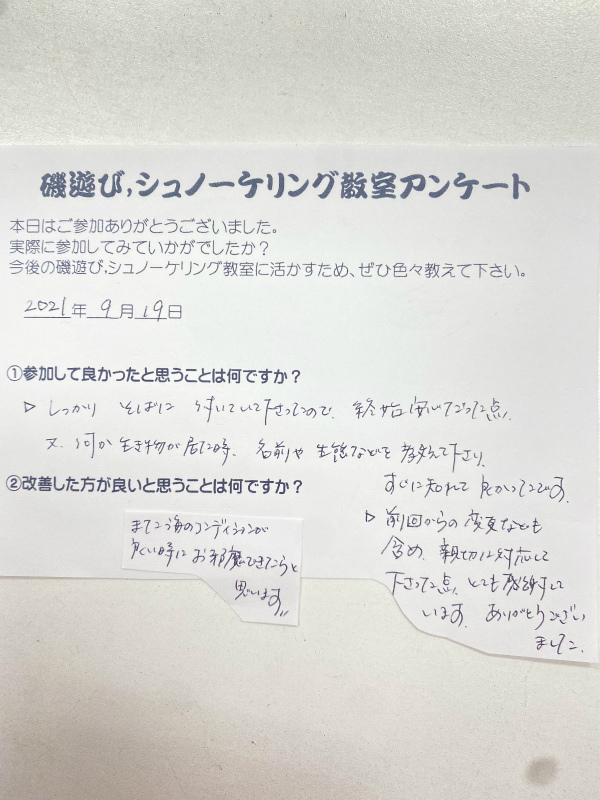 磯遊び,シュノーケリング教室アンケート
本日はご参加ありがとうございました。
実際に参加してみていかがでしたか？
今後の磯遊び,シュノーケリング教室に活かすため、ぜひ色々教えて下さい。
2021年 9月 19日
①参加して良かったと思うことは何ですか？
▷ しっかり そばに 付いていて下さったので、終始安心でだった点。
又、何か生き物が居た時、名前や生態などを教えて下さり、
すぐに知れて良かったです。
▷ 前回からの変更なども
含め、親切に対応して
下さった点、とても感謝して
います。ありがとうござい
ました。
②改善した方が良いと思うことは何ですか？
またこ海のコンディションが
良い時にお邪魔できたらと
思います。〃